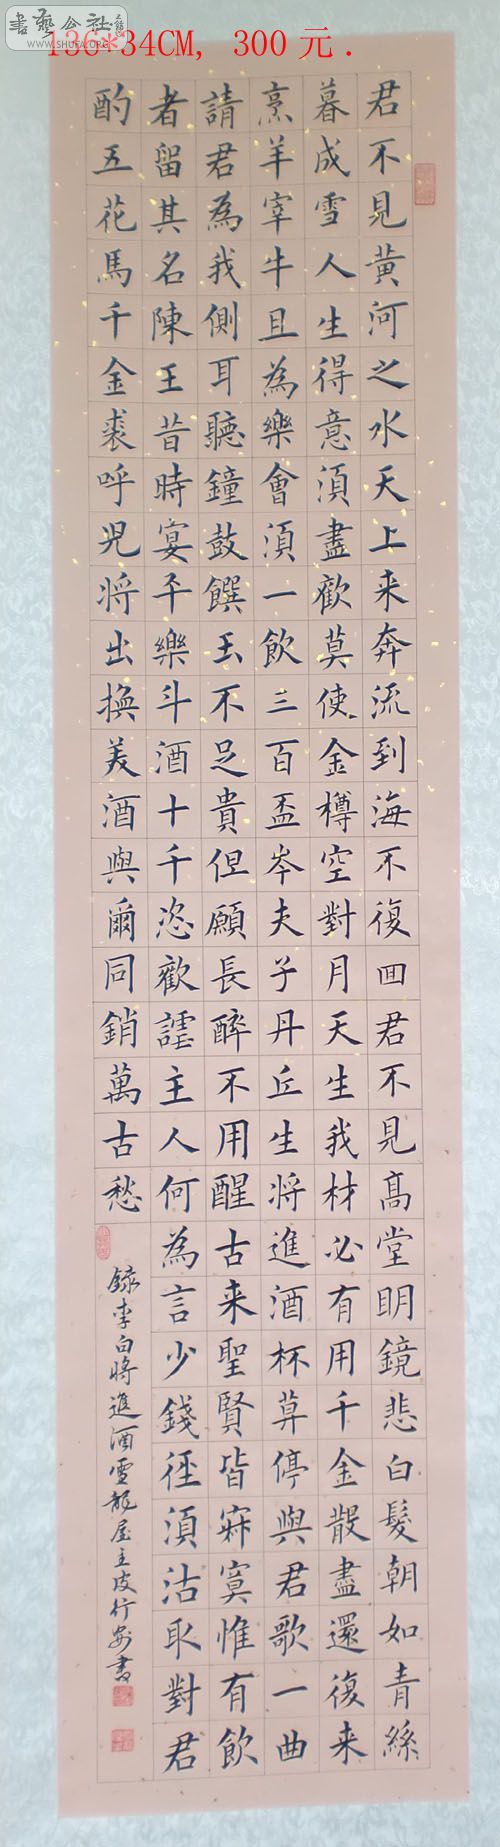 書藝公社
www.SHUFA.ORG
136*34CM, 300元.
君不見黄河之水天上来奔流到海不復回君不見高堂明鏡悲白髮朝如青絲
暮成雪人生得意須盡歡莫使金樽空對月天生我材必有用千金散盡還復来
烹羊宰牛且為樂會須一飲三百盃岑夫子丹丘生將進酒杯莫停與君歌一曲
請君為我側耳聽鐘鼓饌玉不足貴但願長醉不用醒古来聖賢皆寂寞惟有飲
者留其名陳王昔時宴平樂斗酒十千恣歡謔主人何為言少錢徑須沽取對君
酌五花馬千金裘呼兒將出換美酒與爾同銷萬古愁
録李白將進酒雪龍屋主皮行安書